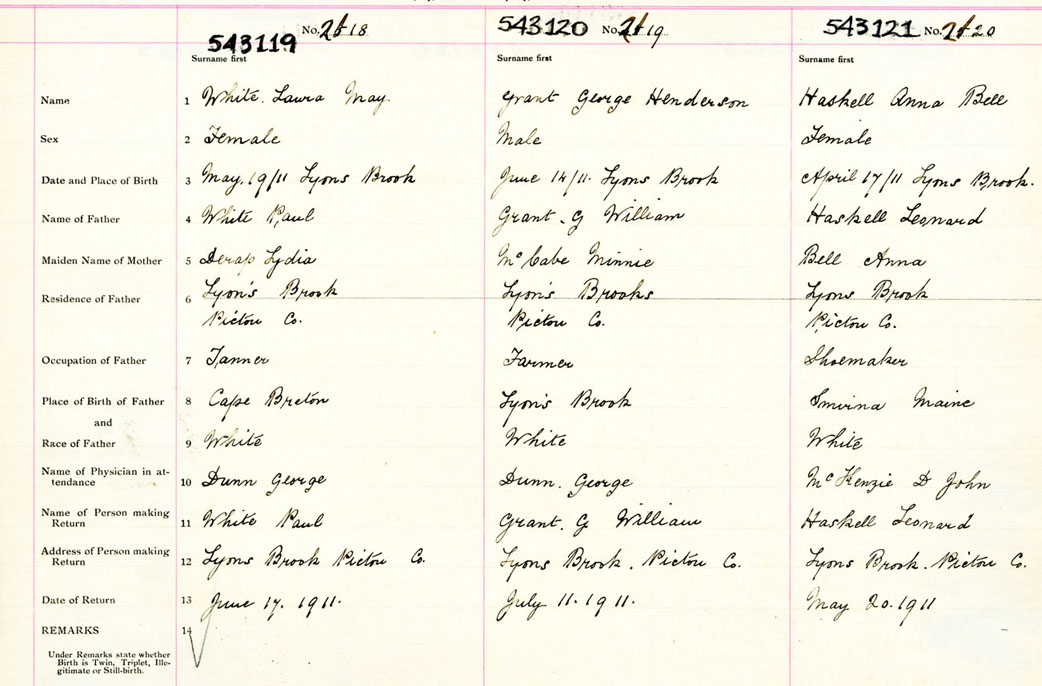 543119 No. 2618 543120 No. 2619 543121 No. 2620
Surname first Surname first Surname first
Name 1 White. Laura May. Grant George Henderson Haskell Anna Bell
Sex 2 Female Male Female
Date and Place of Birth 3 May, 19/11 Lyons Brook June 14/11. Lyons Brook April 17/11 Lyons Brook.
Name of Father 4 White Paul Grant. G William Haskell Leonard
Maiden Name of Mother 5 Lydia McCabe Minnie Bell Anna
Residence of Father 6 Lyon's Brook Lyon's Brooks Lyons Brook
Pictou Co. Pictou Co. Pictou Co.
Occupation of Father 7 Tanner Farmer Shoemaker
Place of Birth of Father 8 Cape Breton Lyon's Brook Smirna Maine
and
Race of Father 9 White White White
Name of Physician in at-
tendance 10 Dunn George Dunn. George McKenzie D John
Name of Person making
Return 11 White Paul Grant. G William Haskell Leonard
Address of Person making
Return 12 Lyons Brook Pictou Co. Lyons Brook. Pictou Co. Lyons Brook. Pictou Co.
Date of Return 13 June 17. 1911. July 11. 1911. May 20. 1911
REMARKS 14
Under Remarks state whether
Birth is Twin, Triplet, Ille-
gitimate or Still-birth.